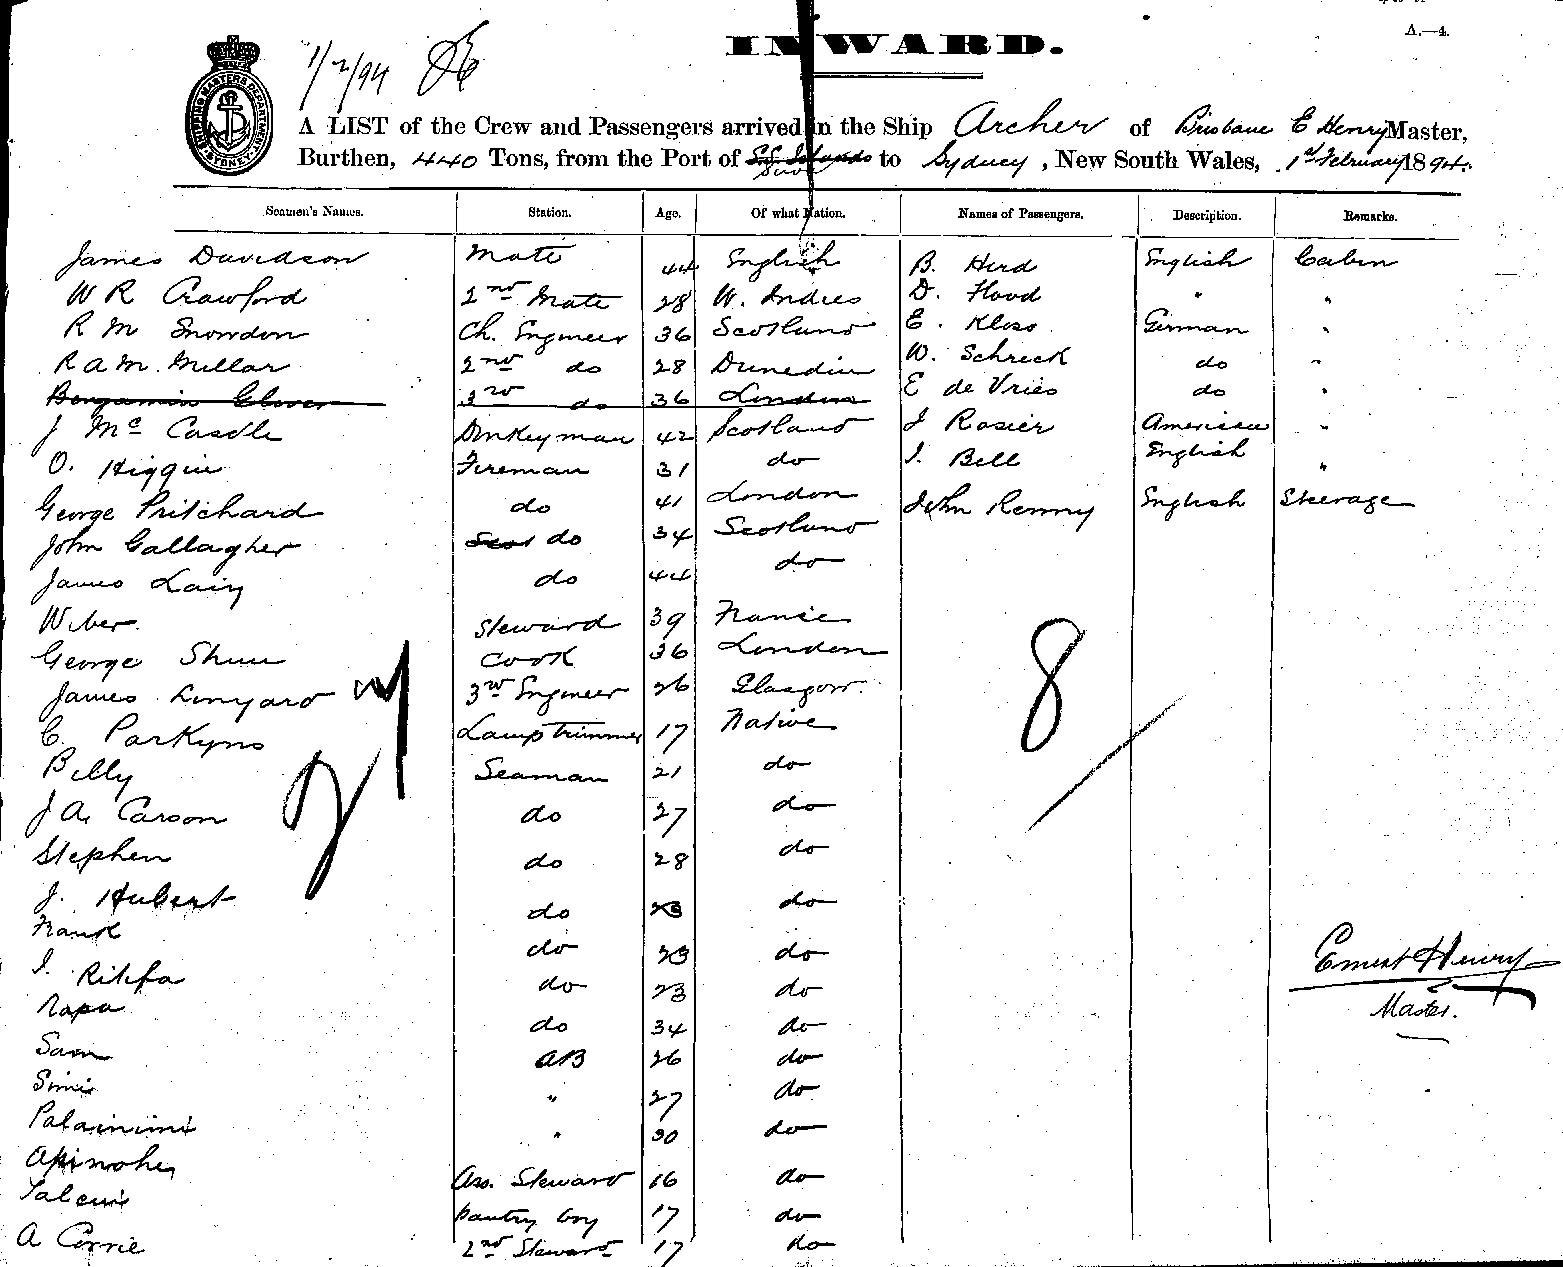 A.—4.
INWARD.
1/2/94
SHIPPING MASTERS DEPARTMENT SYDNEY
A LIST of the Crew and Passengers arrived in the Ship Archer of Brisbane E Henry Master,
Burthen, 440 Tons, from the Port of S.S. Islands Suva to Sydney, New South Wales, 1st February 1894.
Seamen's Names. Station. Age. Of what Nation. Names of Passengers. Description. Remarks.
James Davidson Mate 44 English B. Herd English Cabin
W R Crawford 2nd Mate 28 W. Indies D. Flood " "
R M Snowdon Ch. Engineer 36 Scotland E. Kloss German "
R A M. Millar 2nd do 28 Dunedin W. Schreck do "
Benjamin Glover 3rd do 36 London E de Vries do "
J Mc Casdle Donkeyman 42 Scotland J Rosier American "
O. Higgin Fireman 31 do J. Bell English "
George Pritchard do 41 London John Renny English Steerage
John Gallagher Scot do 34 Scotland
James Lain do 44 do
Weber. Steward 39 France
George Shum Cook 36 London
James Linyard 3rd Engineer 26 Glasgow.
C. Parkyns Lamp trimmer 17 Native
Billy Seaman 21 do
J A. Carson do 27 do
Stephen do 28 do
J. Hubert do 23 do
Frank do 23 do
I. Rikifa do 23 do
Napa do 34 do
Sam AB 26 do
Simi " 27 do
Palainimi " 30 do
Apinoher Ass. Steward 16 do
Taleni pantry boy 17 do
A Corrie 2nd Steward 17 do
27
8
Ernest Henry
Master.